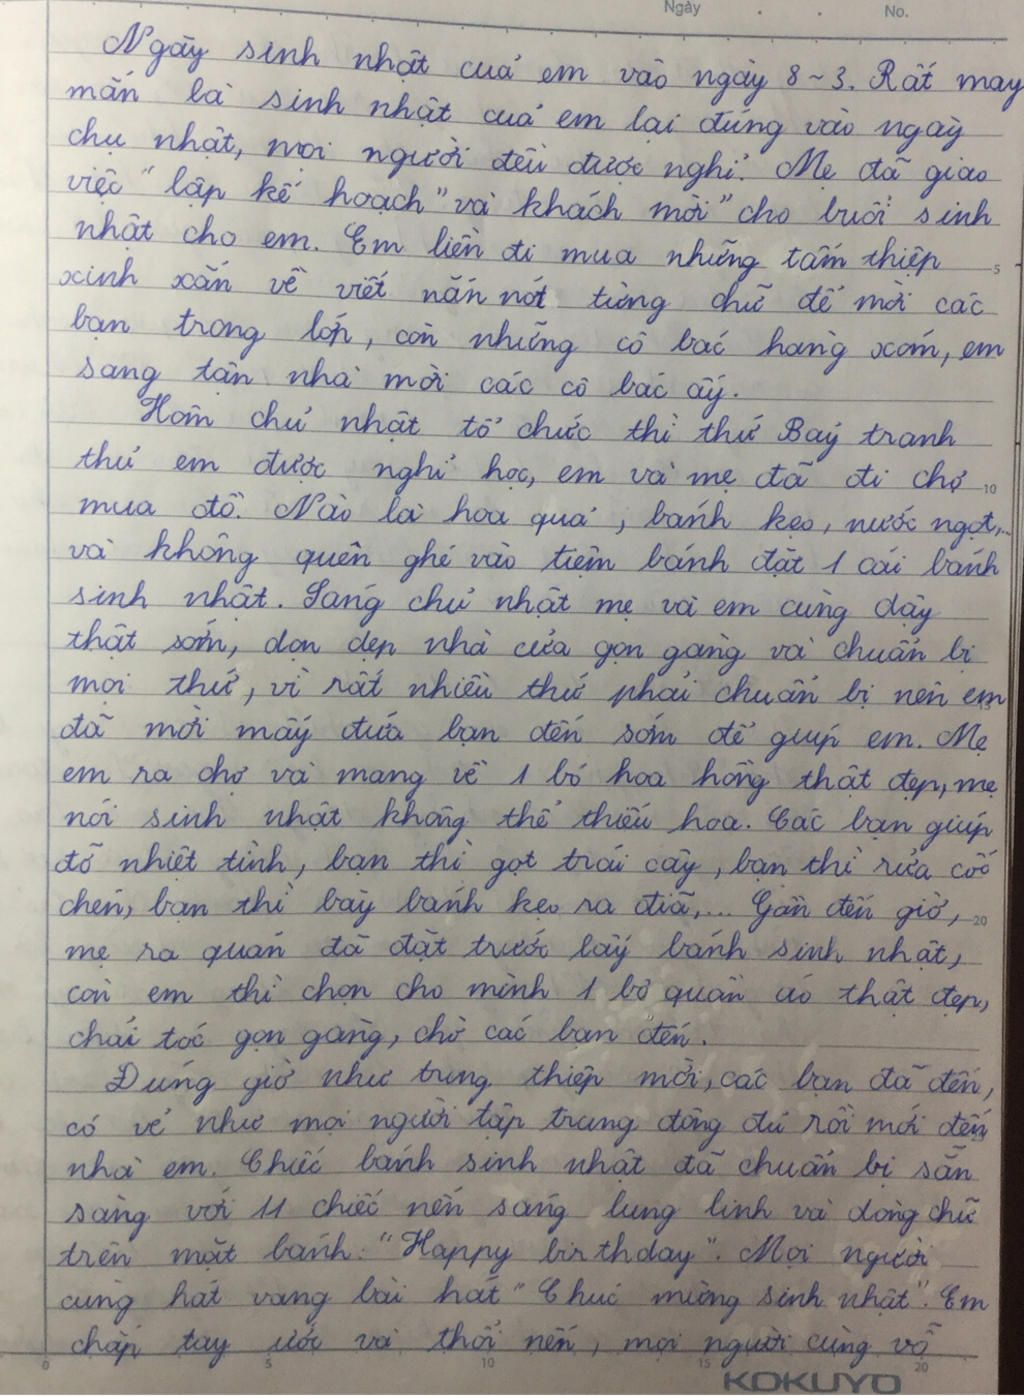 Ngày    No.
Ngày sinh nhật của em vào ngày 8~3. Rất may
mắn là sinh nhật của em lại đúng vào ngày
chụ nhật, mọi người đều được nghỉ. Mẹ đã giao
việc "lập kế hoạch" và khách mời" cho buổi sinh
nhật cho em. Em liền đi mua những tấm thiệp
xinh xắn về viết nắn nót từng chữ để mời các
bạn trong lớp, còn những cô bác hàng xóm, em
sang tận nhà mời các cô bác ấy.
Hôm chủ nhật tổ chức thì thứ Bảy tranh
thủ em được nghỉ học, em và mẹ đã đi chợ
mua đồ. Nào là hoa quả, bánh kẹo, nước ngọt,...
và không quên ghé vào tiệm bánh đặt 1 cái bánh
sinh nhật. Sáng chủ nhật mẹ và em cùng dậy
thật sớm, dọn dẹp nhà cửa gọn gàng và chuẩn bị
mọi thứ, vì rất nhiều thứ phải chuẩn bị nên em
đã mời mấy đứa bạn đến sớm để giúp em. Mẹ
em ra chợ và mang về 1 bó hoa hồng thật đẹp, mẹ
nói sinh nhật không thể thiếu hoa. Các bạn giúp
đỡ nhiệt tình, bạn thì gọt trái cây, bạn thì rửa cốc
chén, bạn thì bày bánh kẹo ra đĩa,... Gần đến giờ,
mẹ ra quán đã đặt trước lấy bánh sinh nhật,
còn em thì chọn cho mình 1 bộ quần áo thật đẹp,
chải tóc gọn gàng, chờ các bạn đến.
Đúng giờ như trong thiệp mời, các bạn đã đến,
có vẻ như mọi người tập trung đông đủ rồi mới đến
nhà em. Chiếc bánh sinh nhật đã chuẩn bị sẵn
sàng với 11 chiếc nến sáng lung linh và dòng chữ
trên mặt bánh: "Happy birthday". Mọi người
cùng hát vang bài hát "Chúc mừng sinh nhật". Em
chắp tay ước và thổi nến, mọi người cùng vỗ
KOKUYO